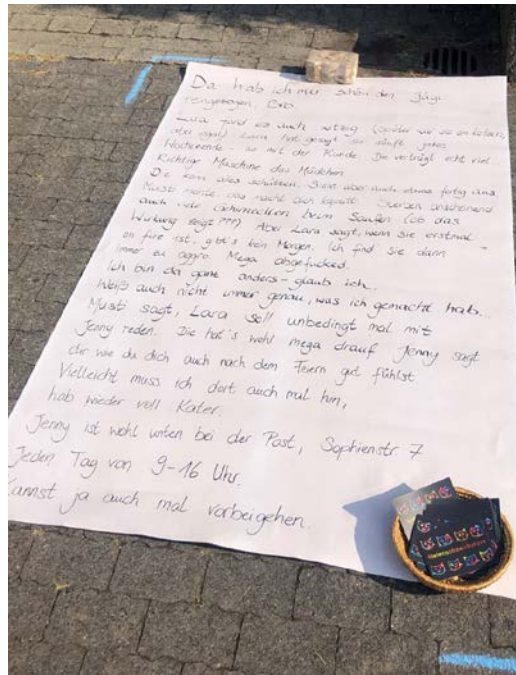 Da hab ich mir schön den Jägi
reingezogen, Bro.
Lara fand es auch witzig (später war sie am kotzen,
aber egal) Lara hat gesagt sie säuft jedes
Wochenende - so mit der Runde. Die verträgt echt viel
Richtige Maschine das Mädchen
Die kann alles schütten. Sieht aber auch etwas fertig aus.
Musti meinte, das macht dich kaputt
auch viele Gehirnzellen beim Saufen (ob das
Wirkung zeigt???) Aber Lara sagt, wenn sie erstmal
on fire ist, gibt's kein Morgen. Ich find sie dann
immer zu aggro. Mega abgefucked.
Ich bin da ganz anders - glaub ich...
Weiß auch nicht immer genau, was ich gemacht hab...
Musti sagt, Lara soll unbedingt mal mit
Jenny reden. Die hat's wohl mega drauf Jenny sagt
dir wie du dich auch nach dem Feiern gut fühlst
Vielleicht muss ich dort auch mal hin,
hab wieder voll Kater.
Jenny ist wohl unten bei der Post, Sophienstr. 7
Jeden Tag von 9-16 Uhr.
Kannst ja auch mal vorbeigehen.